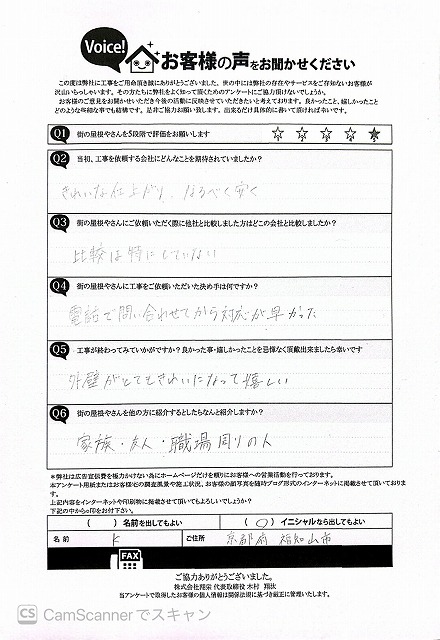 Voice!
お客様の声をお聞かせください
この度は弊社に工事をご用命頂き誠にありがとうございました。世の中には弊社の存在やサービスをご存知ないお客様が
沢山いらっしゃいます。その方たちに弊社をよく知って頂くためのアンケートにご協力頂けないでしょうか。
お客様のご意見をお聞かせいただき今後の活動に反映させていただきたいと考えております。良かったこと、嬉しかったこと
どのような些細な事でも結構です。是非ご協力お願い致します。出来るだけ具体的に書いて頂ければ幸いです。
Q1 街の屋根やさんを5段階で評価をお願いします
Q2 当初、工事を依頼する会社にどんなことを期待されていましたか?
きれいな仕上がり、なるべく安く
Q3 街の屋根やさんにご依頼いただく際に他社と比較しました方はどこの会社と比較しましたか?
比較は特にしていない
Q4 街の屋根やさんに工事をご依頼いただいた決め手は何ですか?
電話で問い合わせてから対応が早かった
Q5 工事が終わってみていかがですか?良かった事・嬉しかったことを忌憚なく頂戴出来ましたら幸いです
外壁がとてもきれいになって嬉しい
Q6 街の屋根やさんを他の方に紹介するとしたらなんと紹介しますか?
家族・友人・職場周りの人
*弊社は広告宣伝費を極力かけない為にホームページだけを頼りにお客様への営業活動を行っております。
本アンケート用紙またはお客様宅の調査風景や施工状況、お客様の顔写真を随時ブログ形式のインターネットに掲載させて頂いております。
上記内容をインターネットや印刷物に掲載させて頂いてもよろしいでしょうか?
下記の中から○印をお付下さい。
( )名前を出してもよい (○)イニシャルなら出してもよい
名前 K ご住所 京都府 福知山市
FAX
ご協力ありがとうございました。
株式会社翔栄 代表取締役 木村 翔汰
当アンケートで取得したお客様の個人情報は関係法規に基づき厳正に管理いたします。
CS CamScannerでスキャン